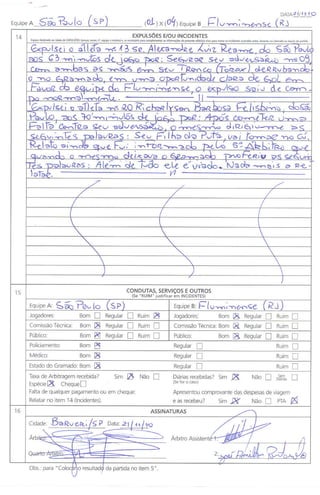 Equipe A: São Paulo (SP) (01) X (04) Equipe B: Fluminense (RJ)
14 EXPULSÕES E/OU INCIDENTES
Expulsei o atleta nº 13 Sr. Alexandre Luiz Reame, do São Paulo
aos 63 minutos de jogo por: Segurar seu adversário nº 09
com ambas as mãos em seu Tronco (Torax) derrubando-
o no gramado, em uma oportunidade clara de Gol em
favor da equipe do Fluminense, o expulso saiu de cam-
po normalmente.
Expulsei o atleta nº 20 Richarlyson Barbosa Felisbino, do São
Paulo, aos 70 minutos de jogo por: Após cometer uma
Falta contra seu adversário, o mesmo dirigiu-me as
seguintes palavras: Seu Filho da Puta, vai Tomar no Cú.
Relato ainda que fui informado pelo 5º Arbitro que
quando o mesmo deixava o gramado proferiu as seguin
Tes palavras: Além de Tudo ele é viado. Nada mais a re-
latar.
15 CONDUTAS, SERVIÇOS E OUTROS
(Se "RUIM" justificar em INCIDENTES)
Equipe A: São Paulo (SP) Equipe B: Fluminense (RJ)
Jogadores: Bom Regular Ruim Jogadores: Bom Regular Ruim
Comissão Técnica: Bom Regular Ruim Comissão Técnica: Bom Regular Ruim
Público: Bom Regular Ruim Público: Bom Regular Ruim
Policiamento: Bom Regular Ruim
Médico: Bom Regular Ruim
Estado do Gramado: Bom Regular Ruim
Taxa de Arbitragem recebida? Sim Não Diárias recebidas? Sim Não
Espécie Cheque
Falta de qualquer pagamento ou em cheque: Apresentou comprovante das despesas de viagem
Relatar no item 14 (Incidentes) e as recebeu? Sim Não PTA
16 ASSINATURAS
Cidade: Barueri/SP Data: 21/11/10
Árbitro Árbitro Assistente 1
Quarto Árbitro
Obs.: para "Coloca o resultado da partida no item 5".